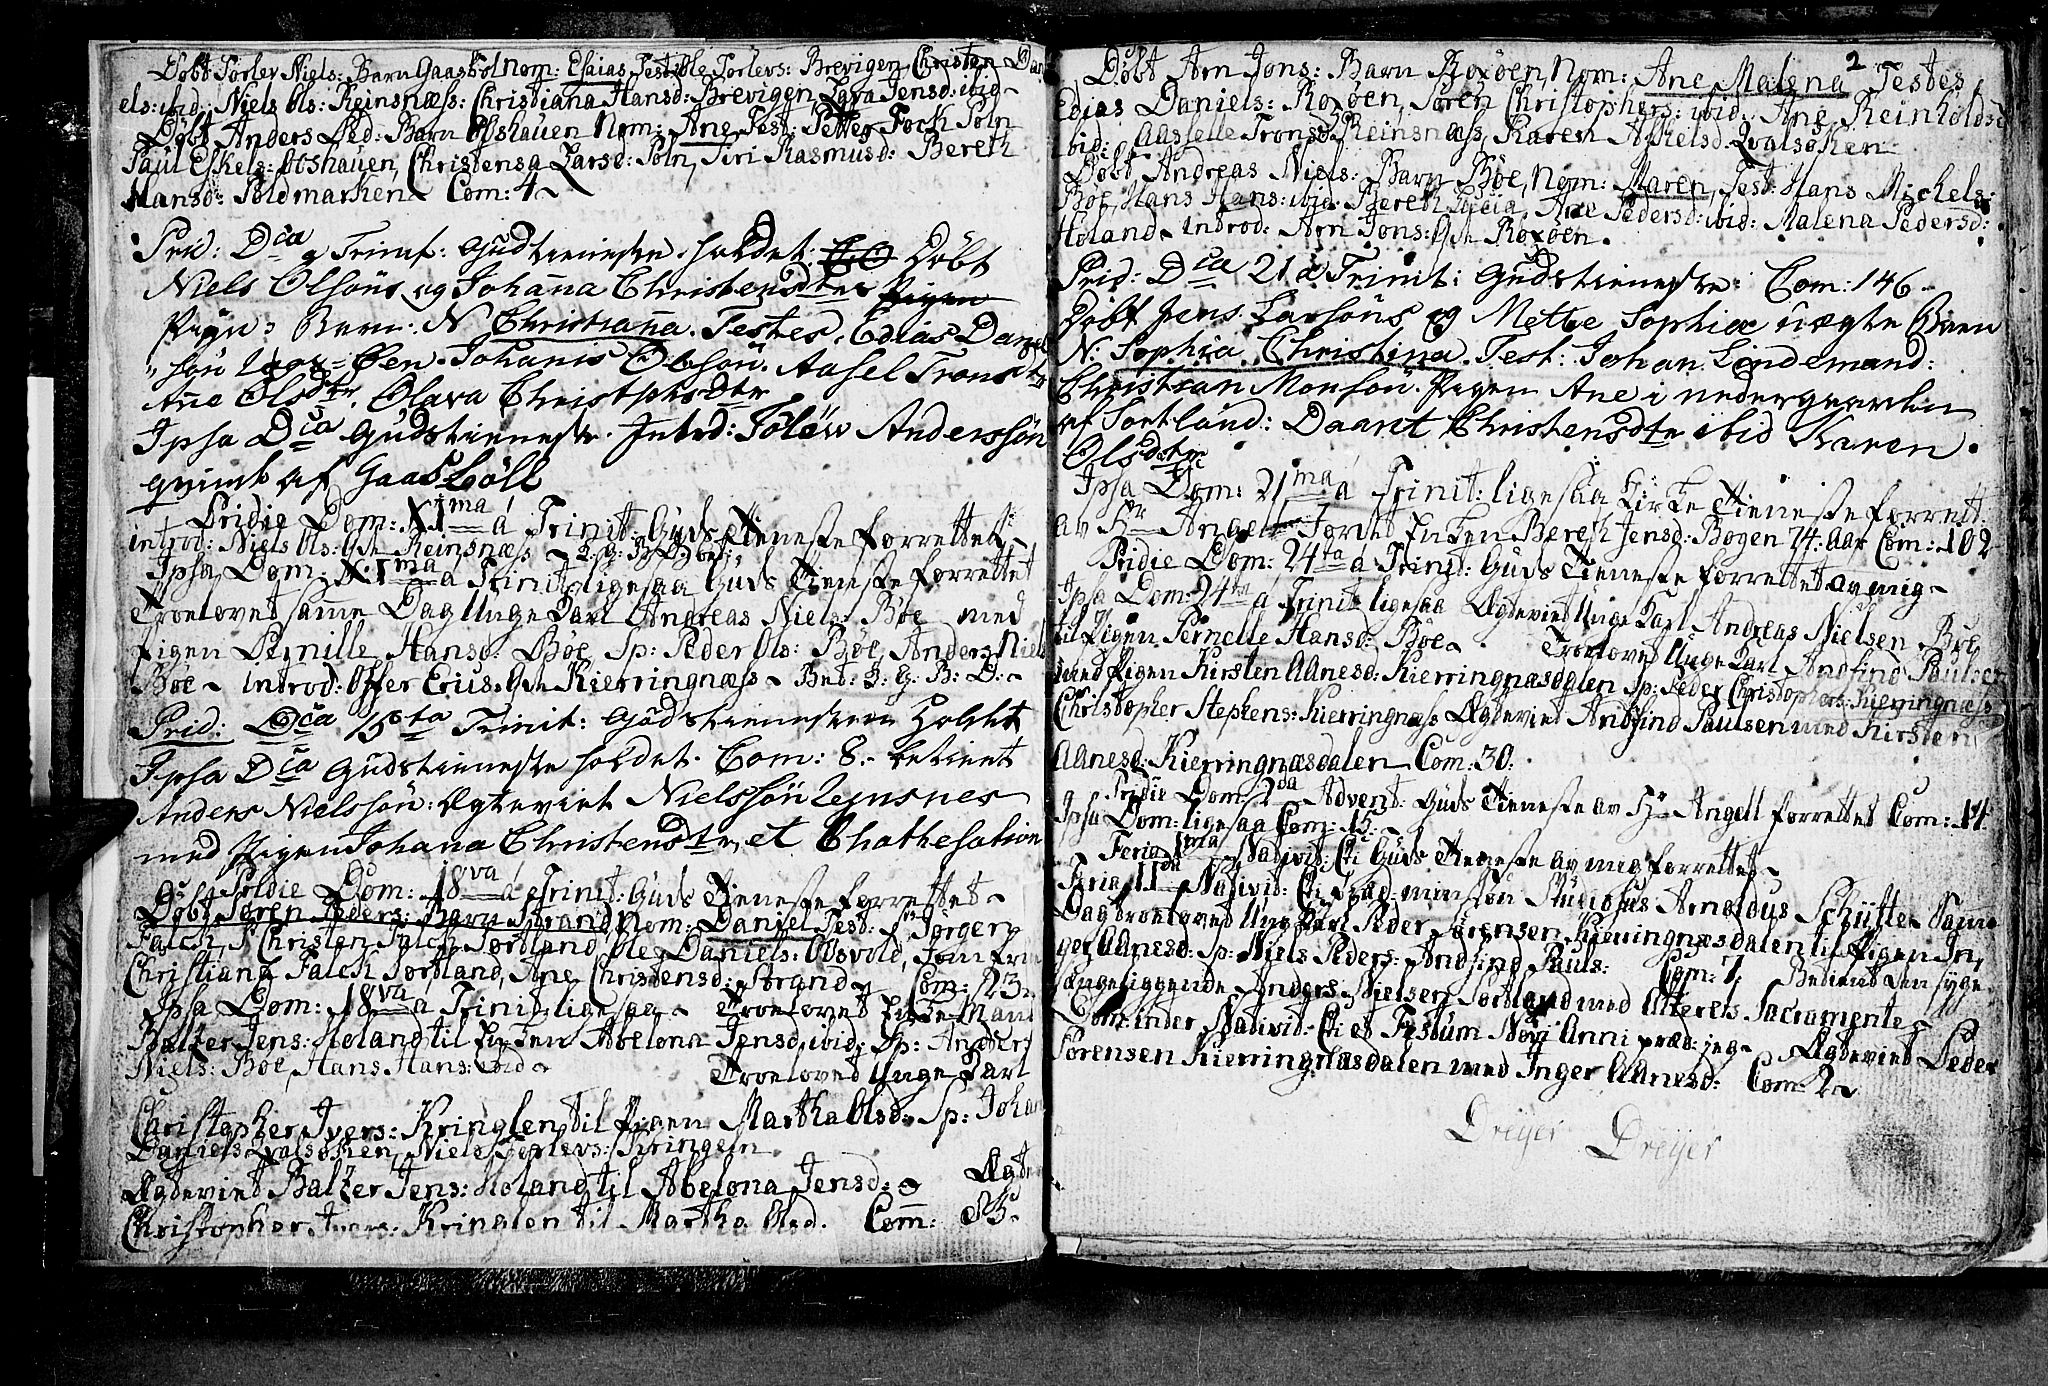 Døbt Torlev Niels: Barn Gaasbøl Nom: Esaias Test: Ole Torlevs: Brevigen, Christen Dani
els: ibid: Niels Ols: Reinsnæss: Christiana Hansd: Brevigen, Jensd: ibid
Døbt Anders Ped: Barn Nom: Ane Test: Petter Foch
Paul Eskels: Christensa Larsd: Siri Rasmusd: Bereth
Hansd: Joldmarken Com: 4
Prid: Dca 9 Trinit: Gudstieneste holdet: Døbt
Niels Olsöns og Johanna Christensdter Pigen
Barn: N Christianna. Testes, Edias Dan
sön Johanis Olsön. Aasel Trons
Ane Olsdtr, Olava Christphrsdtr
Ipsa Dca Gudstieneste. Introd: Tolöw Anderssön
qvinde af Gaasböll
Pridie Dom: XIma á Trinit: Guds Tieneste forrettet
introd: Niels Ols: Qde Reinsnæss
Ipsa Dom: XIma á Trinit: ligesaa Guds Tieneste forrettet
Troelovet same Dag Unge Karl Andreas Niels: Bøe med
Pigen Pernille Hansd: Bøe Sp: Peder Ols: Bøe, Anders Niels
Bøe introd: Offer Erics: Qde Kierringnæss
Prid: Dca 15ta Trinit: Gudstienesten Holdet
Ipsa Dca Gudstieneste holdet. Com: 8. betient
Anders Nielssön: Ægteviet Nielssön
med Pigen Johana Christensdtr, et Chathesation
Pridie Dom: 18va á Trinit: Guds Tieneste forrettet
Døbt Søren Peders: Barn Strand, Nom: Daniel Test: Sr Jørgen
Falch, Sr Christen Falch Sortland, Ole Daniels: Jomfru
Christiana Falch Sortland, Ane Christensd: Strand Com: 23
Ipsa Dom: 18va á Trinit: ligesaa Troelovet Enke Mand
Balzer Jens: Holand til Enken Abelona Jensd, ibid: Sp: Anders
Niels: Bøe, Hans Hans: ibid Troelovet Unge Karl
Christopher Ivers: Kringlen til Pigen Martha Olsd: Sp: Johan
Daniels: Qvalsøken, Niels Torlevs: Kringeln.
Ægteviet Balzer Jens: Holand til Abelona Jensd: Ægte
Christopher Ivers: Kringlen til Martha Olsd. Com: 85
2
Døbt Arn Jons: Barn Roxøen, Nom: Ane Malena Testes
Edias Daniels: Roxøen, Søren Christophers: ibid: Ane Reinholdsd
ibid: Aasselle Tronsd: Reinsnæss, Karen Askelsd: Qvalsøken
Døbt Andreas Niels: Barn Bøe, Nom: Maren, Test: Hans Michels:
Bøe, Hans Hans: ibid: Bereth Lucia, Ane Pedersd: ibid: Malena Pedersd:
Holand. Introd: Arn Jons: Qde Roxøen.
Prid: Dca 21 á Trinit: Gudstieneste: Com: 146
Döbt Jens Larsöns og Mette Sophiæ uægte Barn
N: Sophia Christina. Test: Johan Lindemand:
Christian Monsön. Pigen Ane i nedergaarden
af Sortland: Daaret Christensdtr ibid Karen
Olsdtr
Ipsa Dom: 21ma á Trinit: ligesaa Kirke Tieneste forrett:
av Hr Angell Jordet Enken Bereth Jensd: Bogen 74: Aar Com: 102
Pridie Dom: 24ta á Trinit: Guds Tieneste forrettet av mig
Ipsa Dom: 24ta á Trinit: ligesaa Ægteviet Unge Karl Andreas Nielsen Bøe
til Pigen Pernelle Hansd: Bøe Troelovet Unge Karl Andfind Paulsen
med Pigen Kirsten Aanesd: Kierringnæsdalen Sp: Peder Christophers: Kierringnæss
Christopher Stephens: Kierringnæss Ægteviet Andfind Paulsen med Kirsten
Aanesd: Kierringnæsdalen Com: 30.
Pridie Dom: 2da Advent: Guds Tieneste av Hr Angell forrettet Com: 14
Ipsa Dom: ligesaa Com: 15
Feria Ima Nativit: Cti Guds Tieneste av mig forrettet
Feria IIda Nativit: Cti Præd: min søn Studiosus Arnoldus Schytte Same
Dag troelovet Unge Karl Peder Sørensen Kierringnæsdalen til Pigen In
ger Aanesd: Sp: Niels Peders: Andfind Pauls: Com: 7 Betient den syge
sængeliggende Anders Nielsen Sortland med Alterets Sacramente
Dom: inder Nativit: Cti et Festum Novi Anni præd: jeg Ægteviet Peder
Sørensen Kierringnæsdalen med Inger Aanesd: Com: 2
Dreyer Dreyer